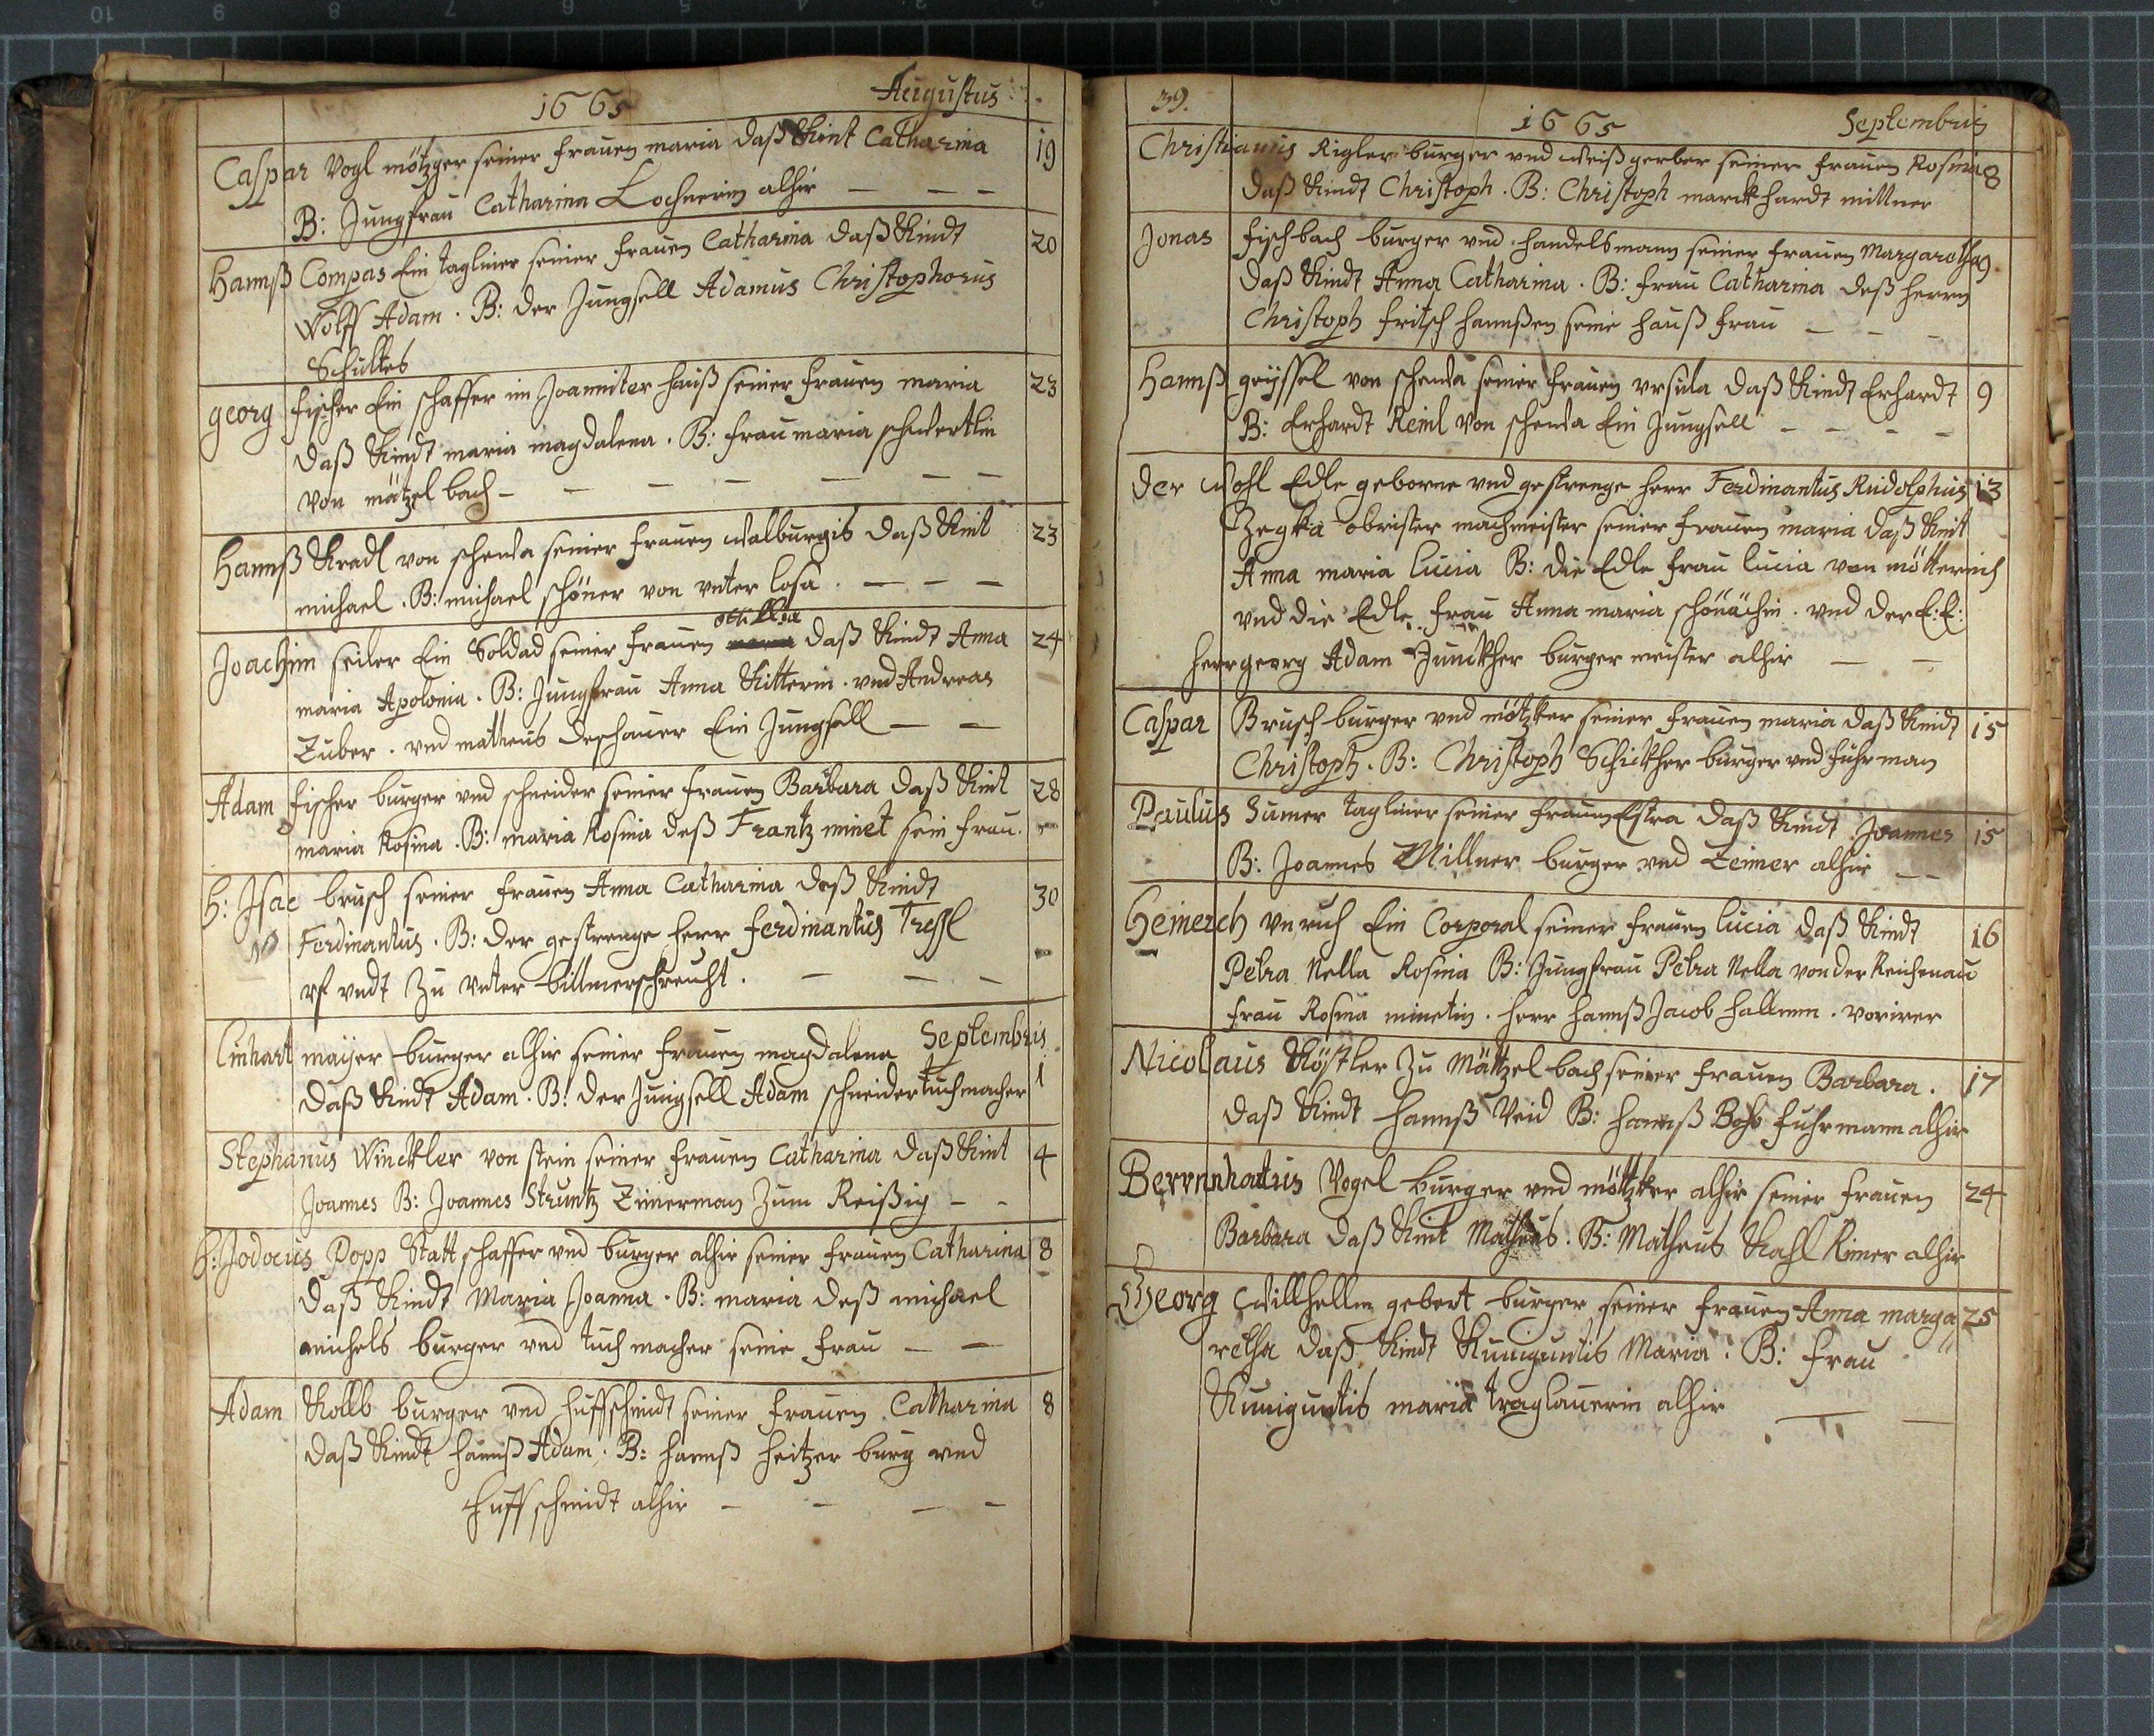 1665 Augustus
Caspar Vogl mötzger seiner frauen maria daß Kint Catharina 19
B: Jungfrau Catharina Lochnerin alhir
Hannß Compas Ein tagliner seiner frauen Catharina daß Kindt 20
Wolff Adam . B: der Jungsell Adamus Christophorus
Schultes
georg fischer Ein schaffer im Joanniter hauß seiner frauen maria 23
daß Kindt maria magdalena . B: frau maria schwertlin
von mätzelbach
Hannß Kradl von schenda seiner frauen walburgis daß Kint 23
michael . B: michael schöner von vnter losa
ottillia
Joachim seiler Ein Soldad seiner frauen daß Kindt Anna 24
maria Apolonia . B: Jungfrau Anna Kitterin . vnd Andreas
Zuber . vnd matheus deschauer Ein Jungsell
Adam fischer burger vnd schneider seiner frauen Barbara daß Kint 28
maria Rosina . B: maria Rosina deß Frantz minet sein frau .
H: Isac brusch seiner frauen Anna Catharina daß Kindt 30
Ferdinantus . B: der gestrenge herr ferdinantus Tressl
vf vndt Zu vnter
Septembris
Linhart maijer burger alhir seiner frauen magdalena 1
daß Kindt Adam . B: der Jungsell Adam schneider tuchmacher
Stephanus Winckler von stein seiner frauen Catharina daß Kint 4
Joannes B: Joannes Struntz Zimerman Zum Reißig
H: Jodocus Popp Statt schaffer vnd burger alhir seiner frauen Catharina 8
daß Kindt Maria Joanna . B: maria deß michael
michels burger vnd tuchmacher seine frau
Adam Kollb burger vnd huffschmidt seiner frauen Catharina 8
daß Kindt hannß Adam . B: hannß heitzer burg vnd
huffschmidt alhir
39.
1665 Septembris
Christianus Rigler burger vnd weißgerber seiner frauen Rosina 8
daß Kindt Christoph . B: Christoph marckhardt mittner
Jonas fischbach burger vnd handelsmann seiner frauen Margaretha 9
daß Kindt Anna Catharina . B: frau Catharina deß herrn
Christoph fritsch hannßen seine hauß frau
Hannß geyssel von schenda seiner frauen vrsula daß Kindt Erhardt 9
B: Erhardt Reinl von schenda Ein Jungsell
Der Wohl Edle geborne vnd gestrenge herr Ferdinantus Rudolphus 13
Zegka obrister wachmeister seiner frauen maria daß Kint
Anna maria lucia B: die Edle frau lucia von mötternich
vnd die Edle frau Anna maria schönächin . vnd der E: E:
herr georg Adam Junckher burger meister alhir
Caspar Brusch burger vnd mötzker seiner frauen maria daß Kindt 15
Christoph . B: Christoph Schickher burger vnd fuhrman
Paulus Sumer tagliner seiner frauen Estra daß Kindt Joannes 15
B: Joannes Millner burger vnd Zeiner alhir
Heinerch vnruh Ein Corporal seiner frauen lucia daß Kindt 16
Petra Nella Rosina B: Jungfrau Petra Nella von der Reichenau
frau Rosina minetin . herr hannß Jacob
Nicolaus Köstler Zu Mättzelbach seiner frauen Barbara . 17
daß Kindt hannß Veid B: hannß fuhrmann alhir
Bernnhatus Vogel burger vnd mötzker alhir seiner frauen 24
Barbara daß Kint Matheus . B: Matheus Kahl Rimer alhir
Georg Willhellm gebert burger seiner frauen Anna marga 25
retha daß Kindt Kuniguntis Maria . B: frau
Kuniguntis maria traglauerin alhir